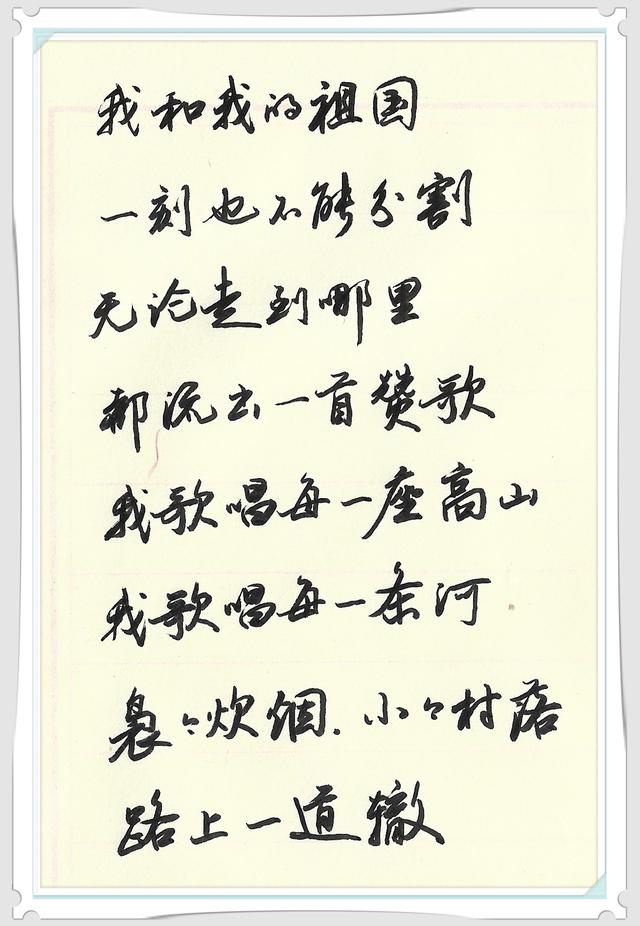 我和我的祖国
一刻也不能分割
无论走到哪里
都流出一首赞歌
我歌唱每一座高山
我歌唱每一条河
袅々炊烟.小々村落
路上一道辙